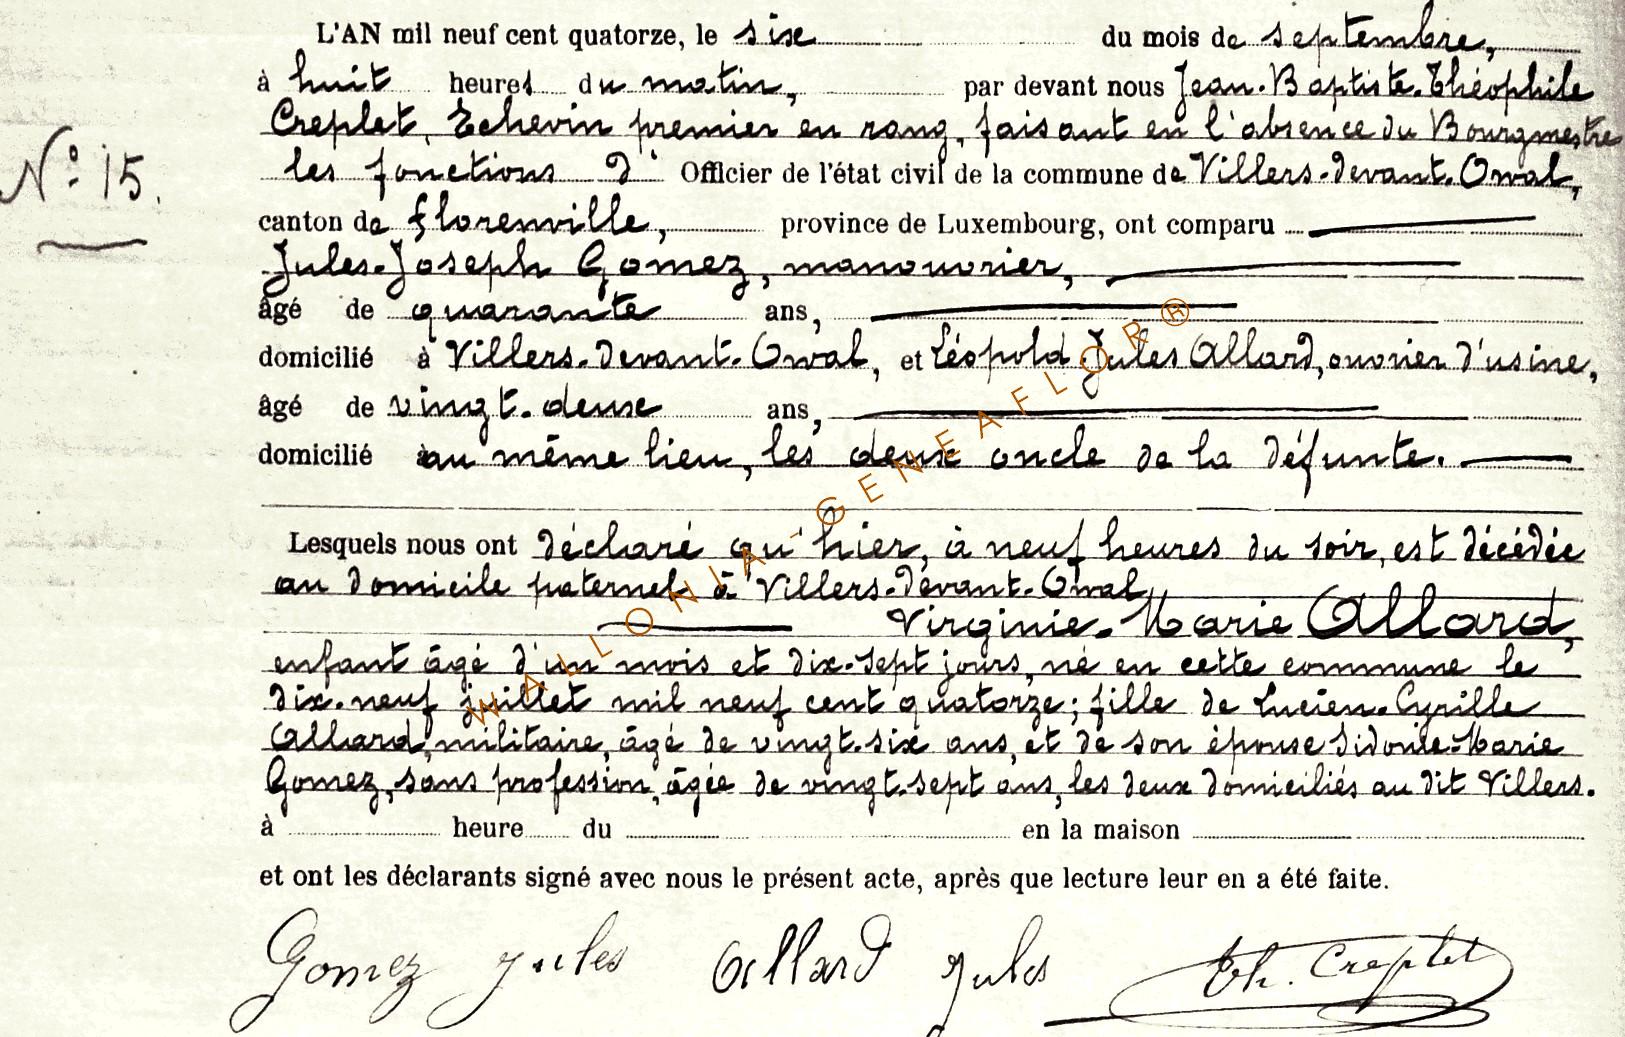 L'AN mil neuf cent quatorze, le six du mois de septembre,
à huit heures du matin, par devant nous Jean-Baptiste-Théophile
Creplet, Echevin premier en rang, faisant en l'absence du Bourgmestre
N° 15. les fonctions d' Officier de l'état civil de la commune de Villers-devant-Orval,
canton de Florenville, province de Luxembourg, ont comparu
Jules-Joseph Gomez, manouvrier,
âgé de quarante ans,
domicilié à Villers-devant-Orval, et Léopold Jules Allard, ouvrier d'usine,
âgé de vingt-deux ans,
domicilié au même lieu, les deux oncle de la défunte.
Lesquels nous ont déclaré qu'hier, à neuf heures du soir, est décédée
au domicile paternel à Villers-devant-Orval
Virginie-Marie Allard,
enfant âgé d'un mois et dix-sept jours, né en cette commune le
dix-neuf juillet mil neuf cent quatorze; fille de Lucien-Cyrille
Allard, militaire, âgé de vingt-six ans, et de son épouse Sidonie-Marie
Gomez, sans profession, âgée de vingt-sept ans, les deux domiciliés au dit Villers.
à heure du en la maison
et ont les déclarants signé avec nous le présent acte, après que lecture leur en a été faite.
Gomez Jules Allard Jules Th. Creplet
WALLONIA-GENEAFLOR®